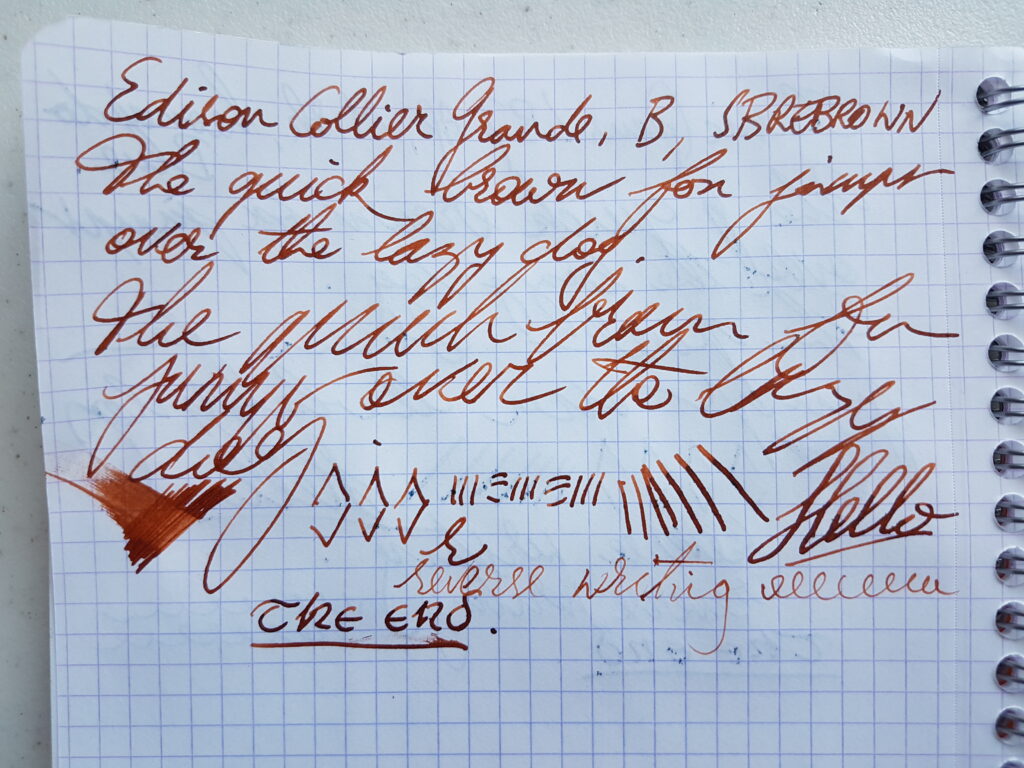 Edison Collier Grande, B, SBREBROWN
The quick brown fox jumps
over the lazy dog.
The quick brown fox
jumps over the lazy
dog
Hello
reverse writing
THE END.